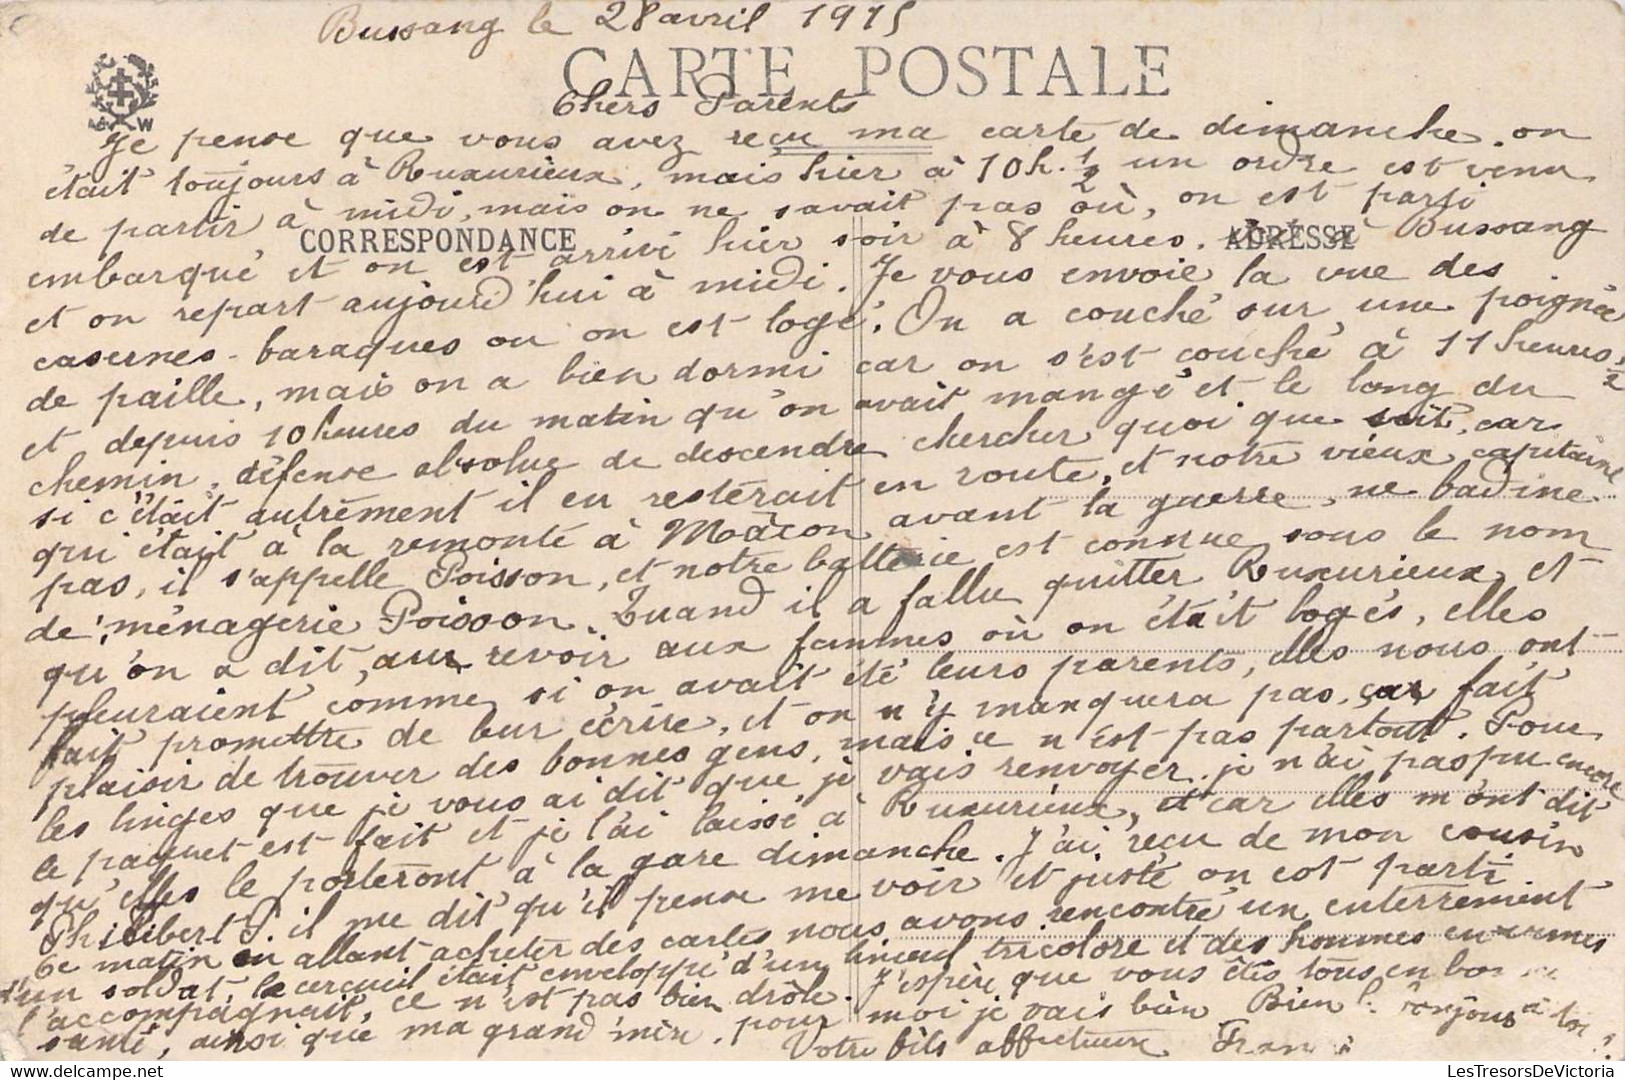 Bussang le 28 avril 1915
CARTE POSTALE
Chers Parents
A W
Je pense que vous avez reçu ma carte de dimanche, on
était toujours à Ruxurieux, mais hier à 10h. 1/2 un ordre est venu
de partir à midi, mais on ne savait pas où, on est parti
CORRESPONDANCE
ADRESSE
embarqué et on est arrivé hier soir à 8 heures. à Bussang
et on repart aujourd'hui à midi. Je vous envoie la vue des
casernes-baraques ou on est logé. On a couché sur une poignée
de paille, mais on a bien dormi car on s'est couché à 11 heures 1/2
et depuis 10 heures du matin qu'on avait mangé et le long du
chemin, défense absolue de descendre chercher quoi que soit, car
si c'était autrement il en resterait en route, et notre vieux capitaine
qui était à la remonte à Mâcon avant la guerre, ne badine
pas, il s'appelle Poisson, et notre batterie est connue sous le nom
de ménagerie Poisson. Quand il a fallu quitter Ruxurieux et
qu'on a dit, au revoir aux femmes où on était logés, elles
pleuraient comme si on avait été leurs parents, elles nous ont
fait promettre de leur écrire, et on n'y manquera pas, car fait
plaisir de trouver des bonnes gens, mais ce n'est pas partout. Pour
les linges que je vous ai dit que je vais renvoyer, je n'ai pas pu encore
le paquet est fait et je l'ai laissé à Ruxurieux, et car elles m'ont dit
qu'elles le porteront à la gare dimanche. J'ai reçu de mon cousin
Philibert P. il me dit qu'il pense me voir et juste on est parti
Ce matin en allant acheter des cartes nous avons rencontré un enterrement
d'un soldat, le cercueil était enveloppé d'un linceul tricolore et des hommes en armes
l'accompagnait, ce n'est pas bien drôle. J'espère que vous êtes tous en bonne
santé, ainsi que ma grand'mère, pour moi je vais bien Bien bonjour à tous
Votre fils affectueux
LesTresorsDeVictoria
delcampe.net